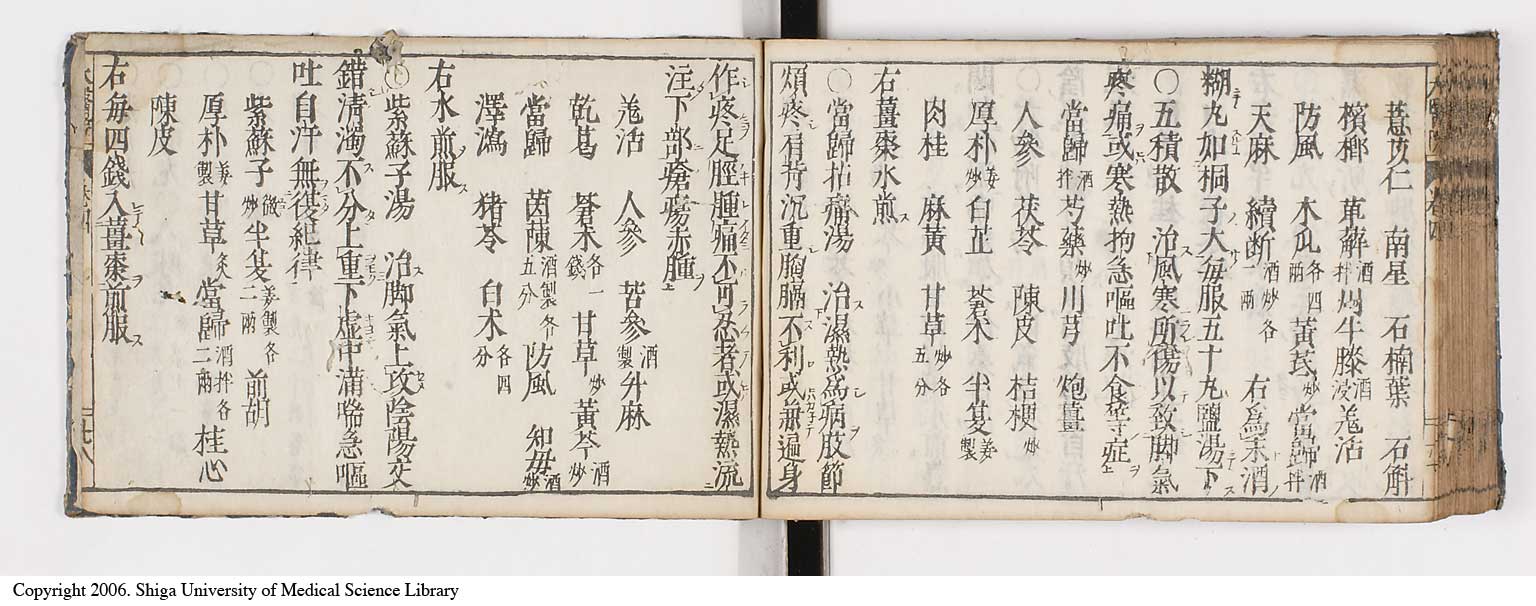 薏苡仁 南星 石楠葉 石斛
檳榔 萆薢酒拌 川牛膝酒浸 羌活
防風 木瓜各四兩 黃芪炒 當歸酒拌
天麻 續断酒炒各一兩 右為末酒
糊丸如桐子大每服五十丸鹽湯下
〇五積散 治風寒所傷以致脚氣
疼痛或寒熱拘急嘔吐不食等症
當歸酒拌 芍藥炒 川芎 炮薑
人參 茯苓 陳皮 桔梗炒
厚朴姜炒 白芷 蒼朮 半夏姜製
肉桂 麻黃 甘草炒各五分
右薑棗水煎
〇當歸拈痛湯 治濕熱為病肢節
煩疼肩背沉重胸膈不利或無遍身
作疼足脛腫痛不可忍者或濕熱流
注下部瘡瘍赤腫
羗活 人參 苦參酒製 升麻
乾葛 蒼朮各一錢 甘草炒 黃芩酒炒
當歸 茵陳酒製各五分 防風 知母酒炒
澤瀉 猪苓 白朮各四分
右水煎服
〇紫蘇子湯 治脚氣上攻陰陽交
錯清濁不分上重下虚中滿喘急嘔
吐自汗無復紀律
紫蘇子微炒 半夏姜製各二兩 前胡
厚朴姜製 甘草炙 當歸酒拌各二兩 桂心
陳皮
右每四錢入薑棗煎服
Copyright 2006. Shiga University of Medical Science Library